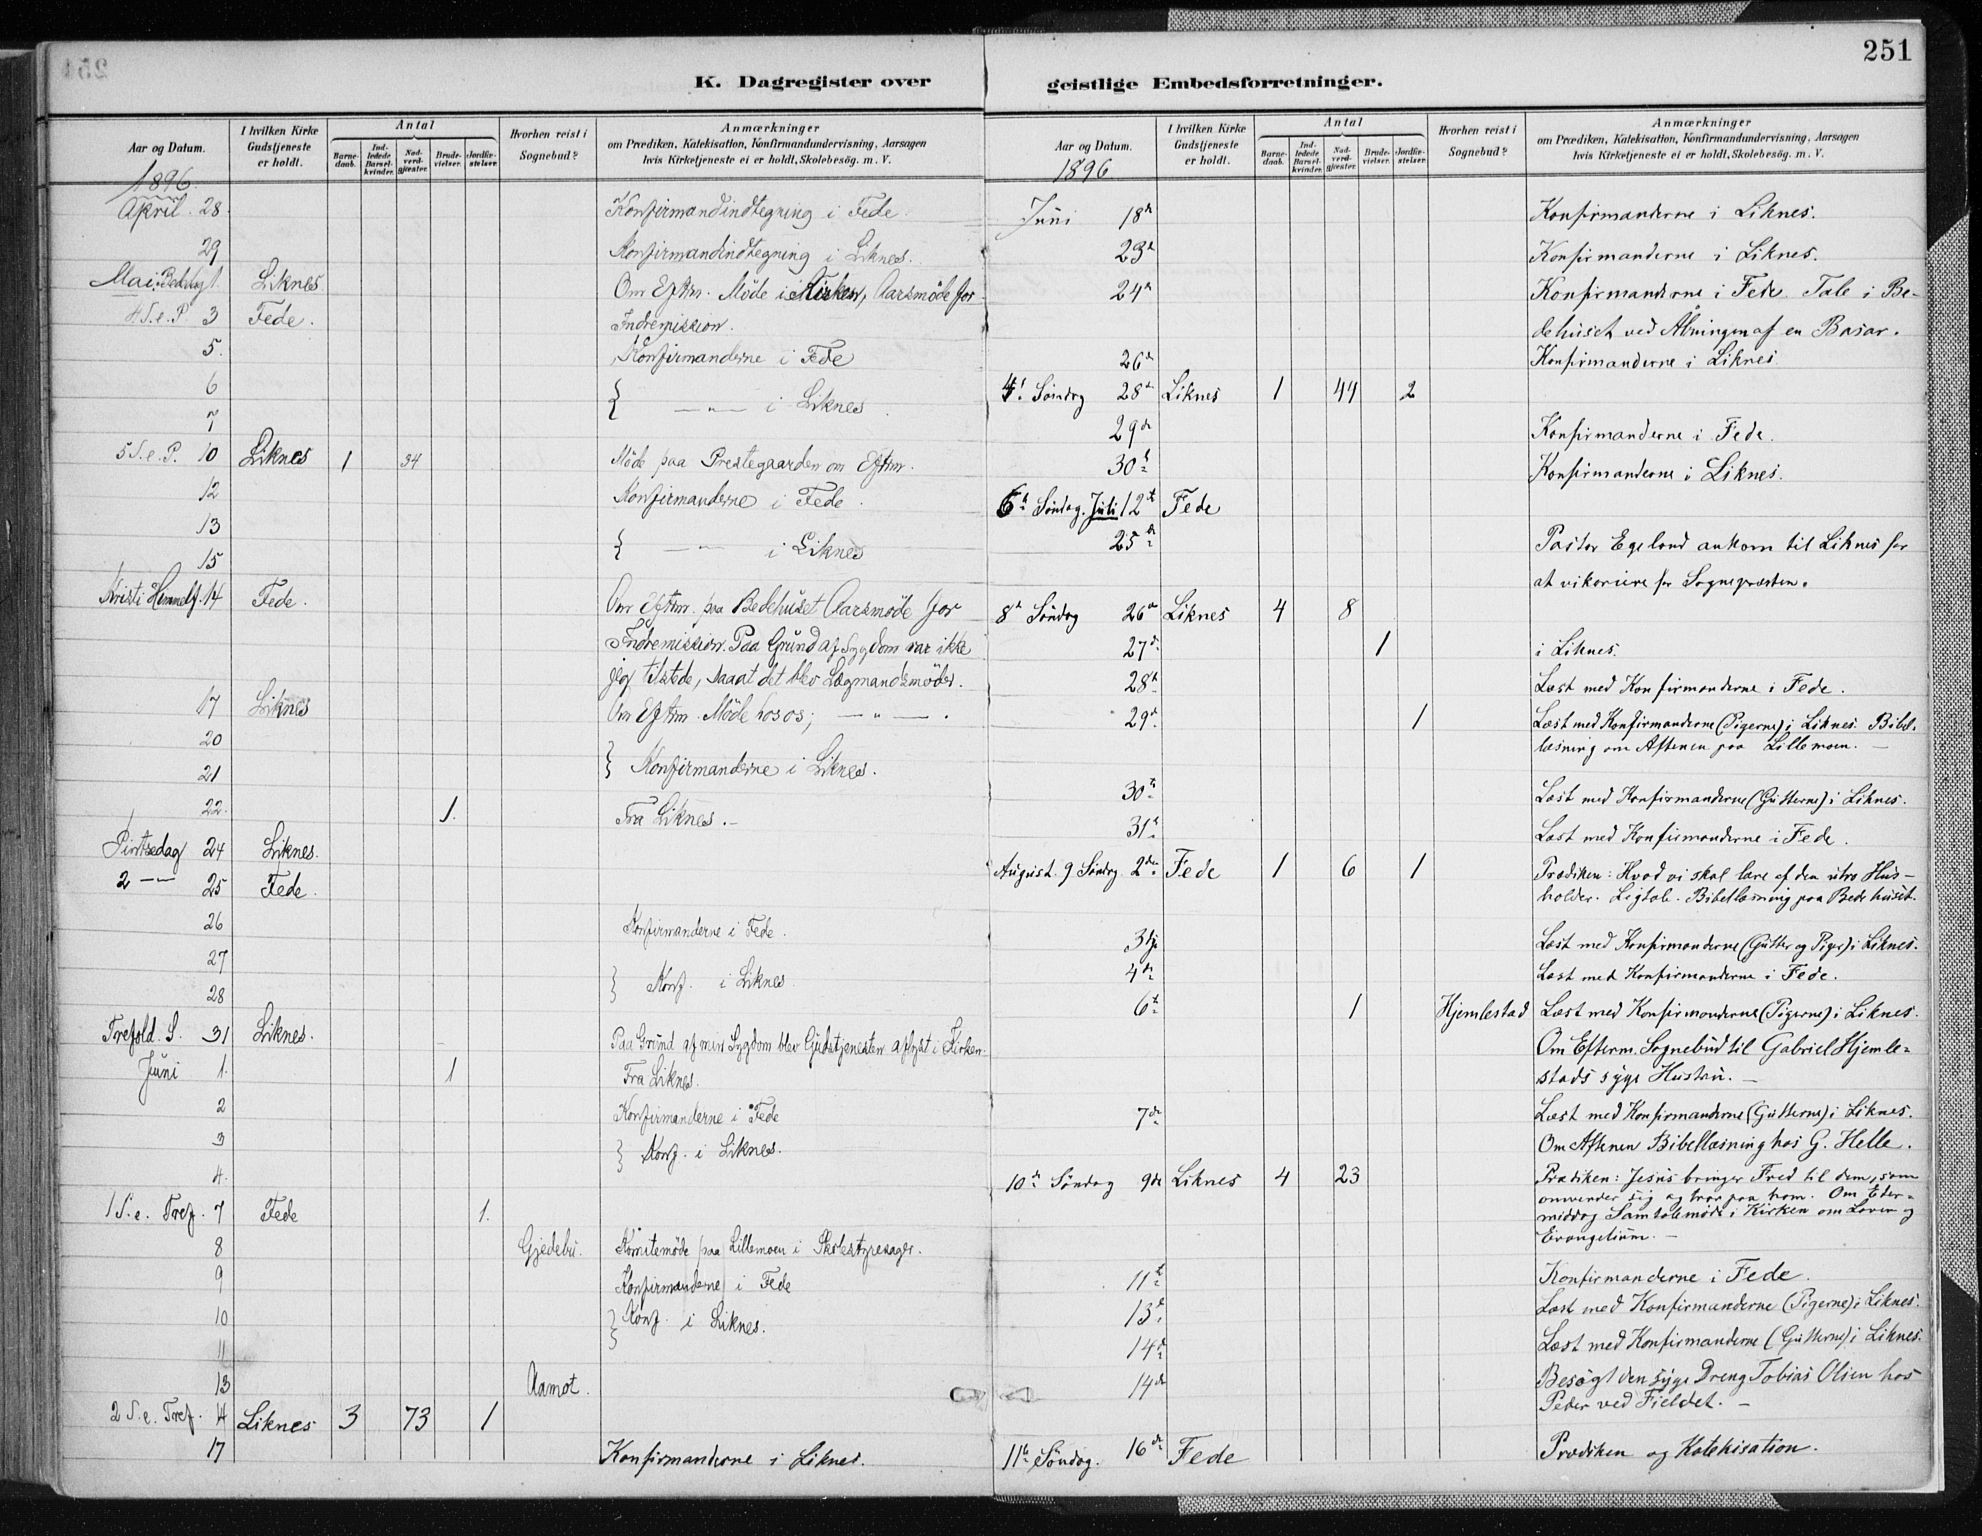 251
K. Dagregister over geistlige Embedsforretninger.
Aar og Datum.
I hvilken Kirke Gudstjeneste er holdt.
Antal
Barne-daab.
Ind-ledede Barsel-kvinder.
Nad-verd-gjæster.
Brude-vielser.
Jordfæ-stelser.
Hvorhen reist i Sognebud?
Anmærkninger
om Prædiken, Katekisation, Konfirmandundervisning, Aarsagen
hvis Kirketjeneste ei er holdt, Skolebesög. m. V.
1896.
April. 28. Konfirmandindtegning i Fede.
29 Konfirmandindtegning i Liknes.
Mai. Liknes Om Eftm. Möde i Kirken, Aarsmöde for
4 S. e. P. 3 Fede. Indremission.
5. Konfirmanderne i Fede
6 { — " — i Liknes.
7
5 S. e. P. 10 Liknes 1 34 Möde paa Prestegaarden om Eftm.
12 Konfirmanderne i Fede.
13 { — " — i Liknes
15
Kristi Himmelf. 14 Fede. Om Eftm. paa Bedehuset Aarsmöde for
Indremission. Paa Grund af Sygdom var ikke
jeg tilstede, saaat det blev Lægmandsmöde.
17 Liknes Om Eftm. Möde hos os; — " — .
20 } Konfirmanderne i Liknes.
21
22. 1. Fra Liknes. —
Pintsedag 24 Liknes.
2 — " — 25 Fede.
26 Konfirmanderne i Fede.
27 } Konf. i Liknes.
28
Trefold. S. 31 Liknes. Paa Grund af min Sygdom blev Gudstjenesten aflyst i Kirken.
Juni 1. 1 Fra Liknes.
2 Konfirmanderne i Fede
3 } Konf. i Liknes.
4.
1 S. e. Tref. 7 Fede 1.
8 Gjedebu. Komitemöde paa Lillemoen i Skolestyresager.
9 Konfirmanderne i Fede
10 } Konf. i Liknes.
11
13 Aamot.
2 S. e. Tref. 14 Liknes 3 73 1
17 Konfirmanderne i Liknes.
Aar og Datum.
I hvilken Kirke Gudstjeneste er holdt.
Antal
Barne-daab.
Ind-ledede Barsel-kvinder.
Nad-verd-gjæster.
Brude-vielser.
Jordfæ-stelser.
Hvorhen reist i Sognebud?
Anmærkninger
om Prædiken, Katekisation, Konfirmandundervisning, Aarsagen
hvis Kirketjeneste ei er holdt, Skolebesög. m. V.
1896
Juni 18de Konfirmanderne i Liknes.
23de Konfirmanderne i Liknes.
24de Konfirmanderne i Fede. Tale i Be-
dehuset ved Abningen af en Basar.
26de Konfirmanderne i Liknes
4de Söndag 28de Liknes 1 44 2
29de Konfirmanderne i Fede.
30te Konfirmanderne i Liknes.
6te Söndag. Juli 12te Fede
25de Pastor Egeland ankom til Liknes for
at vikariere for Sognepræsten.
8de Söndag 26de Liknes 4 8
27de 1 i Liknes.
28de Læst med Konfirmanderne i Fede.
29de 1 Læst med Konfirmanderne (Pigerne) i Liknes. Bibel-
læsning om Aftenen paa Lillemoen. —
30te Læst med Konfirmanderne (Gutterne) i Liknes.
31te Læst med Konfirmanderne i Fede.
August. 9 Söndag 2den Fede 1 6 1 Prædiken: Hvad vi skal lære af den utro Hus-
holder. Ligtale. Bibellæsning paa Bedehuset.
3dje Læst med Konfirmanderne (Gutter og Piger) i Liknes.
4de Læst med Konfirmanderne i Fede.
6te 1 Hjemlestad Læst med Konfirmanderne (Pigerne) i Liknes.
Om Efterm. Sognebud til Gabriel Hjemle-
stads syge Hustru. —
7de Læst med Konfirmanderne (Gutterne) i Liknes.
Om Aftenen Bibellæsning hos G. Helle.
10de Söndag 9de Liknes 4 23 Prædiken: Jesus bringer Fred til dem, som
omvender sig og tror paa ham. Om Efter-
middag Samtalemöde i Kirken om Loven og
Evangelium. —
11te Konfirmanderne i Fede.
13de Læst med Konfirmanderne (Pigerne) i Liknes.
14de Læst med Konfirmanderne (Gutterne) i Liknes.
14de Besögt den syge Dreng Tobias Olsen hos
Peder ved Fjeldet. —
11te Söndag. 16de Fede Prædiken og Katekisation.